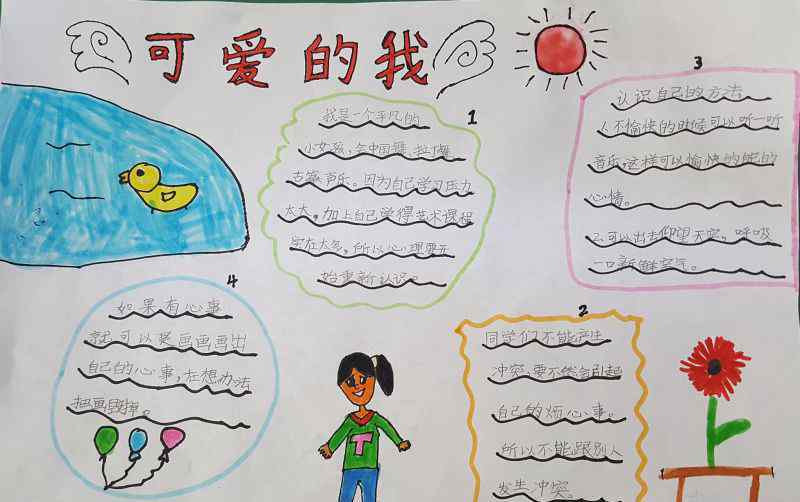 可爱的我
1
我是一个平凡的
小女孩,会中国舞、拉丁舞、
古筝、声乐。因为自己学习压力
太大。加上自己学得艺术课程
实在太多,所以心理要开
始重新认识。
2
同学们不能产生
冲突,要不然会引起
自己的烦心事。
所以不能跟别人
发生冲突。
3
认识自己的方法
人不愉快的时候可以听一听
音乐,这样可以愉快的
心情。
2.可以出去仰望天空。呼吸
一口新鲜空气。
4
如果有心事
就可以要画画画出
自己的心事,在想办法
把画
T